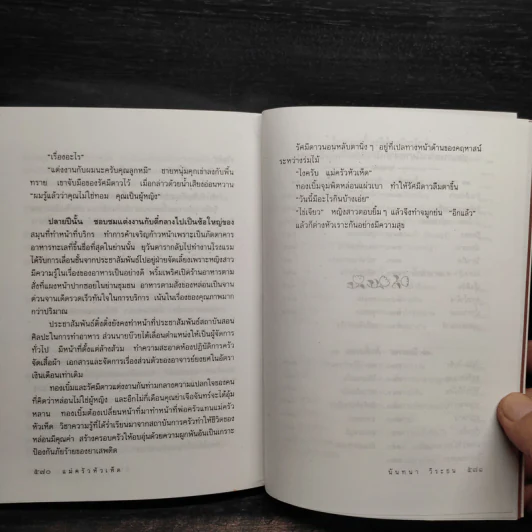 "เรื่องอะไร"
"แต่งงานกับผมนะครับคุณลูกหมี" ชายหนุ่มคุกเข่าลงกับพื้น
ทราย เขาจับมือของรัศมีดาวไว้ เมื่อกล่าวด้วยน้ำเสียงอ่อนหวาน
"ผมรู้แล้วว่าคุณไม่ใช่ทอม คุณเป็นผู้หญิง"
ปลายปีนั้น ชอบชมแต่งงานกับตี๋กลางไปเป็นซ้อใหญ่ของ
สมุนที่ทำหน้าที่บริกร ทำการค้าเจริญก้าวหน้าเพราะเป็นภัตตาคาร
อาหารทะเลที่ขึ้นชื่อที่สุดในย่านนั้น ยุวันดารากลับไปทำงานโรงแรม
ได้รับการเลื่อนชั้นจากประชาสัมพันธ์ไปอยู่ฝ่ายจัดเลี้ยงเพราะหญิงสาว
มีความรู้ในเรื่องของอาหารเป็นอย่างดี พริ้มเพริศเปิดร้านอาหารตาม
สั่งที่แผงหน้าปากซอยในย่านชุมชน อาหารตามสั่งของหล่อนเป็นจาน
ด่วนจานเด็ดรวดเร็วทันใจในการบริการ เน้นในเรื่องของคุณภาพมาก
กว่าปริมาณ
ประชาสัมพันธ์ติ๋งติ๋งยังคงทำหน้าที่ประชาสัมพันธ์สถาบันสอน
ศิลปะในการทำอาหาร ส่วนนายบ๊วยได้เลื่อนตำแหน่งให้เป็นผู้จัดการ
ทั่วไป มีหน้าที่ตั้งแต่ล้างส้วม ทำความสะอาดห้องปฏิบัติการครัว
จัดเสื้อผ้า เอกสารและจัดการเรื่องส่วนตัวของอาจารย์ยงยศในอัตรา
เงินเดือนเท่าเดิม
ทองเบิ้มและรัศมีดาวแต่งงานกันท่ามกลางความแปลกใจของคน
ที่คิดว่าหล่อนไม่ใช่ผู้หญิง และอีกไม่กี่เดือนคุณย่าเจือจันทร์จะได้อุ้ม
หลาน ทองเบิ้มต้องเปลี่ยนหน้าที่มาทำหน้าที่พ่อครัวแทนแม่ครัว
หัวเห็ด วิชาความรู้ที่ได้ร่ำเรียนมาจากสถาบันการครัวทำให้ชีวิตของ
หล่อนมีคุณค่า สร้างครอบครัวให้อบอุ่นด้วยความผูกพันอันเป็นเกราะ
ป้องกันภัยร้ายของยาเสพติด
๕๗๐ แม่ครัวหัวเห็ด
รัศมีดาวนอนหลับตานิ่งๆ อยู่ที่เปลทางหน้าด้านของคฤหาสน์
ระหว่างร่มไม้
"ไงครับ แม่ครัวหัวเห็ด"
ทองเบิ้มจุมพิตหล่อนแผ่วเบา ทำให้รัศมีดาวลืมตาขึ้น
"วันนี้มีอะไรกินบ้างเอ่ย"
"ไข่เจียว" หญิงสาวตอบยิ้มๆ แล้วจึงทำจมูกย่น "อีกแล้ว"
แล้วก็ต่างหัวเราะกันอย่างมีความสุข
นันทนา วีระชน ๕๗๑